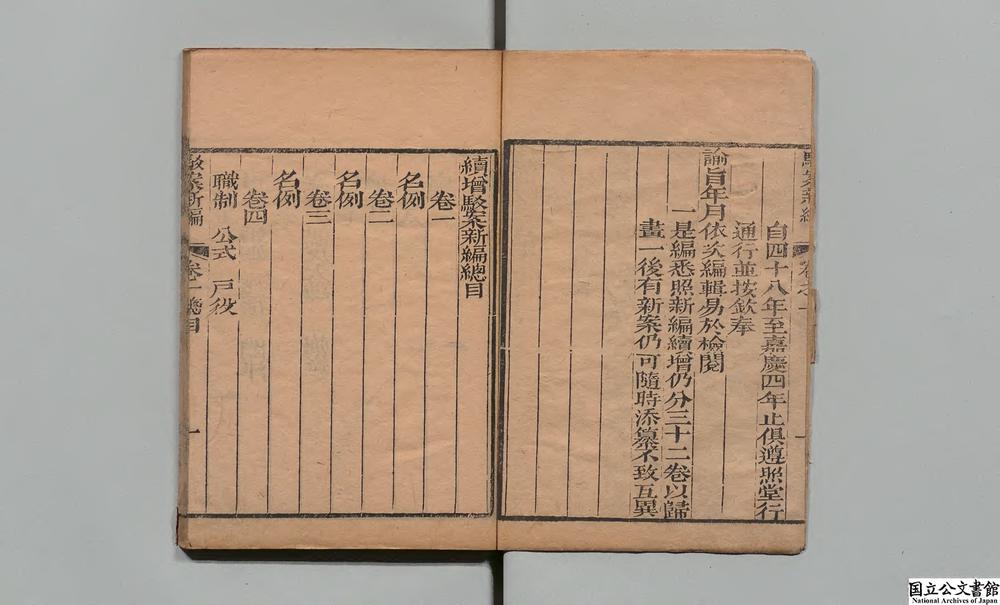 自四十八年至嘉慶四年止俱遵照堂行
通行並按欽奉
諭旨年月依次編輯易於檢閱
一是編悉照新編續增仍分三十二卷以歸
畫一後有新案仍可隨時添纂不致互異
續增駁案新編總目
卷一
名例
卷二
名例
卷三
名例
卷四
職制 公式 戸役
駁案新編 卷一 總目 一
国立公文書館
National Archives of Japan